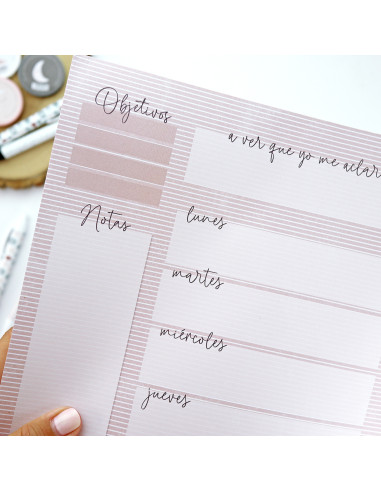 Objetivos
a ver que yo me aclar
Notas
lunes
martes
miércoles
jueves